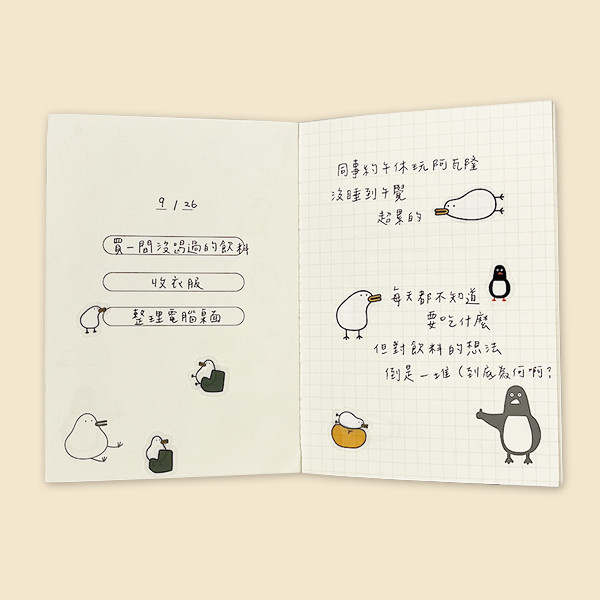 9 / 26
買一間沒喝過的飲料
收衣服
整理電腦桌面
同事約午休玩阿瓦隆
沒睡到午覺
超累的
每天都不知道
要吃什麼
但對飲料的想法
倒是一堆(到底為何啊?